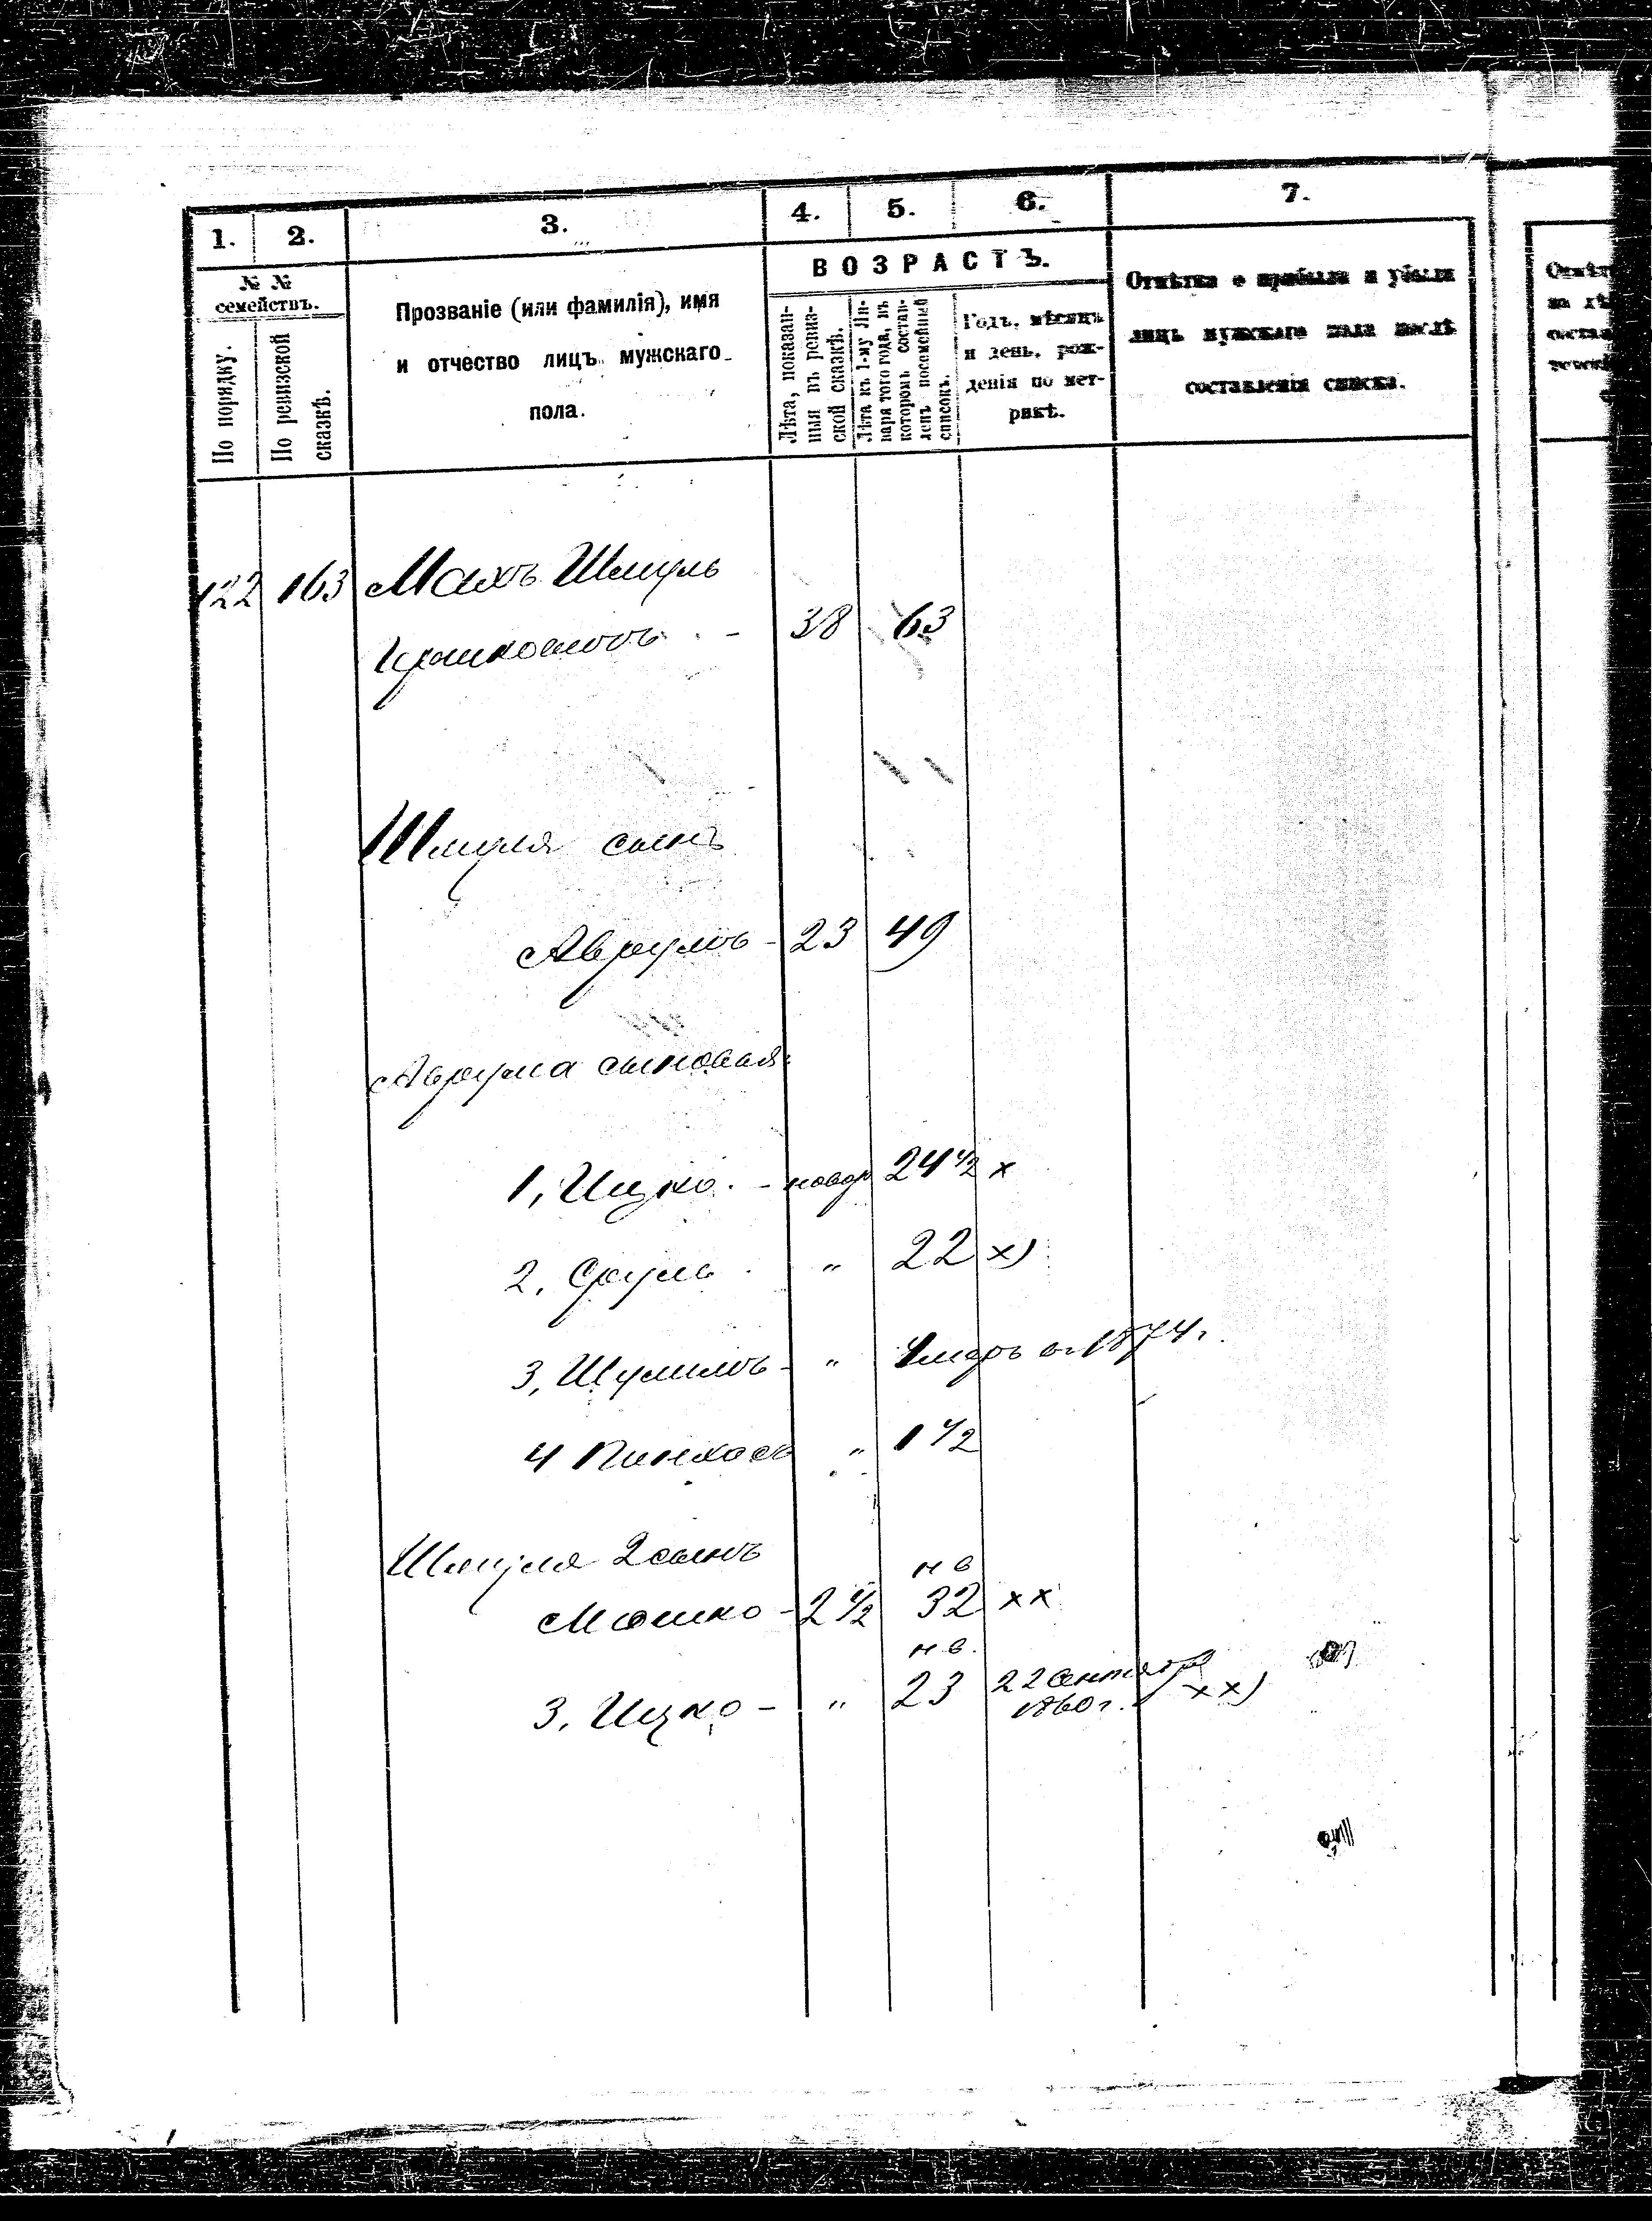 1. 2. 3. 4. 5. 6. 7.
№ №
семействъ.
По порядку.
По ревизской
сказкѣ.
Прозваніе (или фамилія), имя
и отчество лицъ мужскаго
пола.
ВОЗРАСТЪ.
Лѣта, показан-
ныя въ ревиз-
ской сказкѣ.
Лѣта къ 1-му Ян-
варя того года, въ
которомъ состав-
ленъ посемейный
списокъ.
Годъ, мѣсяцъ
и день, рож-
денія по мет-
рикѣ.
Отмѣтка о прибыли и убыли
лицъ мужскаго пола послѣ
составленія списка.
122 163 Махъ Шмуль
38 63
Шмуля сынъ
Аврумъ - 23 49
Аврума сыновья:
1, Ицко. - новор 24 1/2 х
2, Сруль " 22 х)
3, Шулимъ - " Умеръ въ 1874 г.
4 Пинхасъ " 1 1/2
Шмуля 2 сынъ
н в
Мошко - 2 1/2 32 хх
н в.
3, Ицко - " 23 22 Сентября
1860 г. хх)